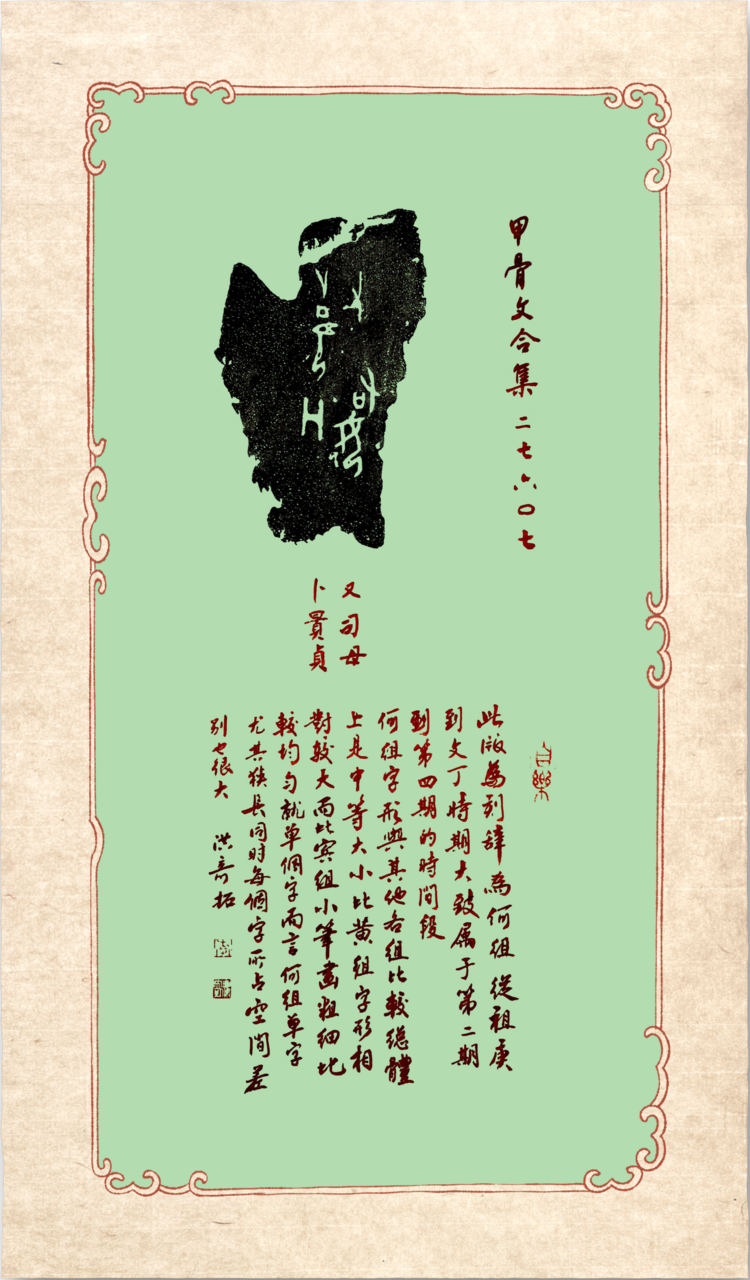 甲骨文合集二七六〇七
又司母
卜㫷貞
此版為列辭為何組從祖庚
到文丁時期大致屬于第二期
到第四期的時間段
何組字形與其他各組比較總體
上是中等大小比黄組字形相
對較大而比賓組小筆畫粗細比
較均勻就單個字而言何組單字
尤其狹長同時每個字所占空間差
别也很大 洪奇拓